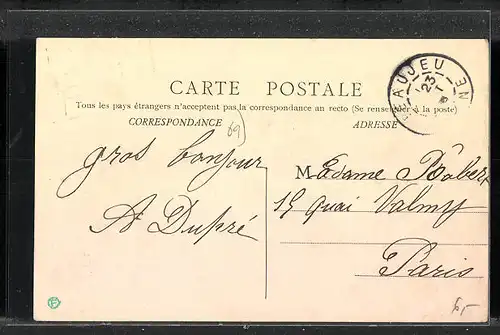 CARTE POSTALE
Tous les pays étrangers n'acceptent pas la correspondance au recto (Se renseigner à la poste)
CORRESPONDANCE
ADRESSE
BEAUJEU
23
69
gros bonjour
A Dupré
Madame Robert
15 quai Valmy
Paris